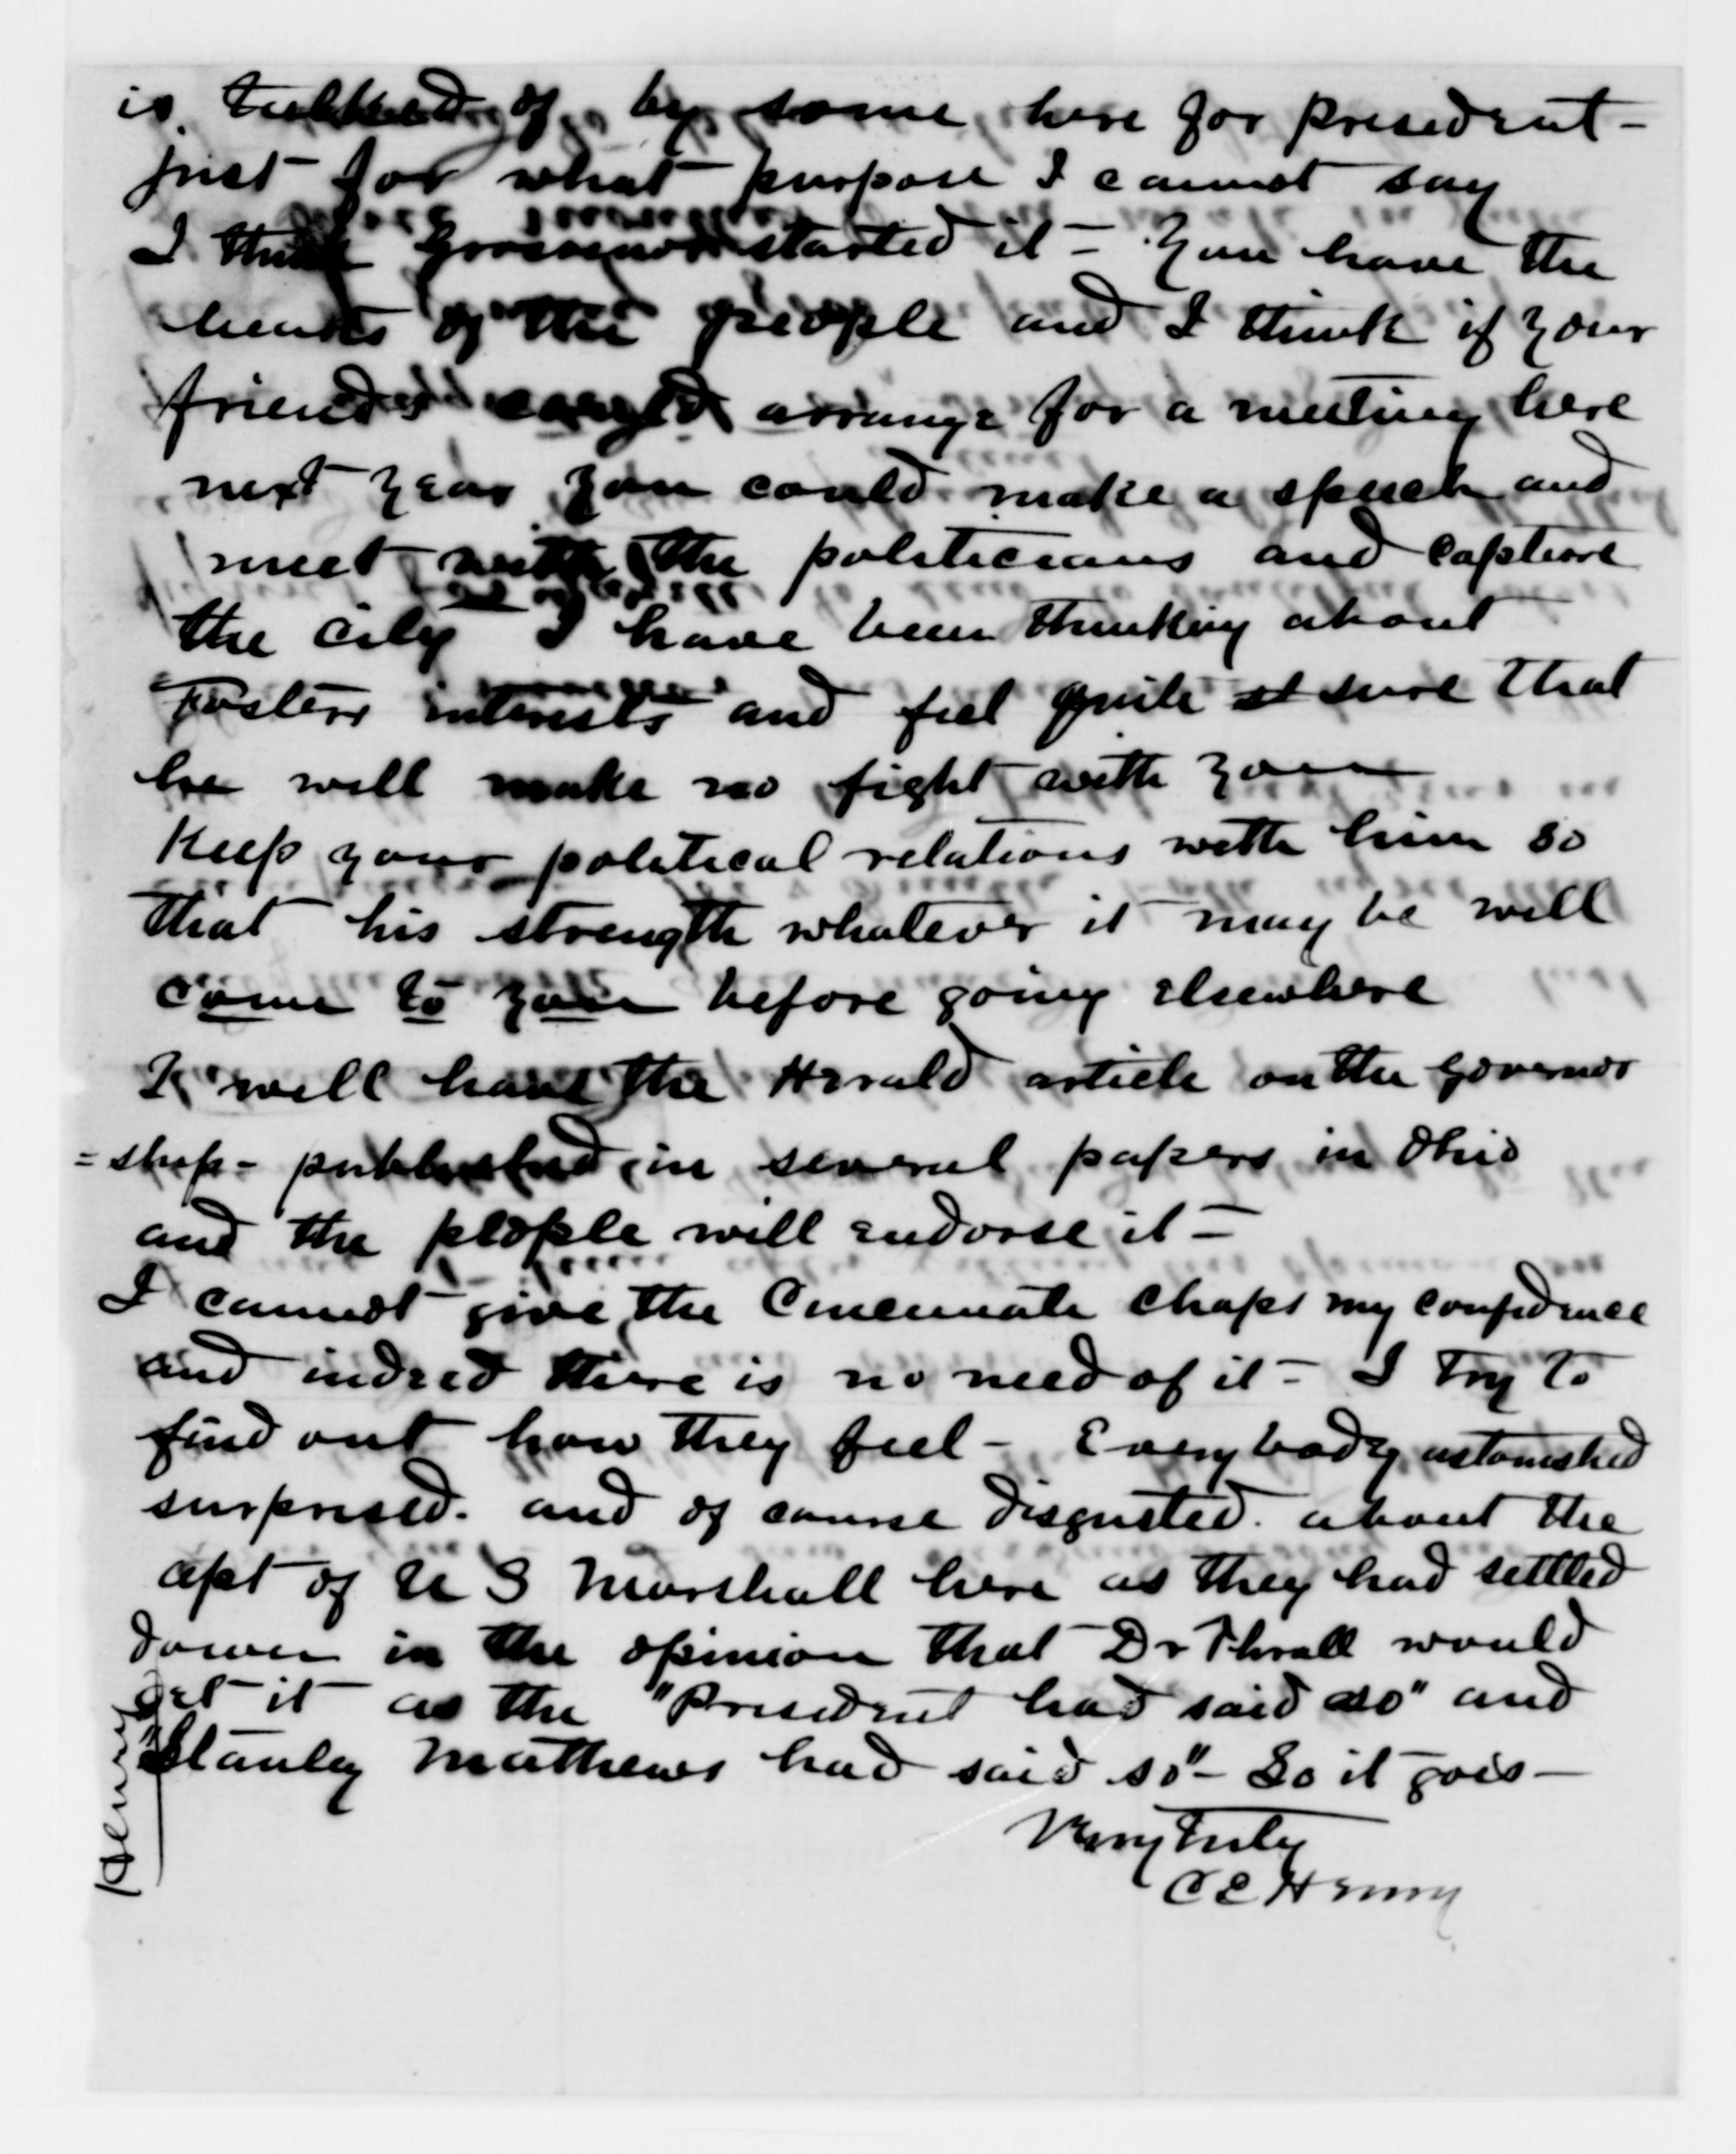 is talked of by some here for president -
just for what purpose I cannot say
I think Grosvenor started it - You have the
hearts of the people and I think if your
friends could arrange for a meeting here
next year you could make a speech and
meet with the politicians and capture
the city I have been thinking about
Fosters interests and feel quite sure that
he will make no fight with you
Keep your political relations with him so
that his strength whatever it may be will
come to you before going elsewhere
I will have the Herald article on the Governor
=ship- published in several papers in Ohio
and the people will endorse it -
I cannot give the Cincinnati chaps my confidence
and indeed there is no need of it - I try to
find out how they feel - Everybody astonished
surprised. and of course disgusted. about the
apt of U S Marshall here as they had settled
down in the opinion that Dr Thrall would
get it as the "President had said so" and
"Stanley Mathews had said so" - So it goes -
Very truly
C E Henry
Henry